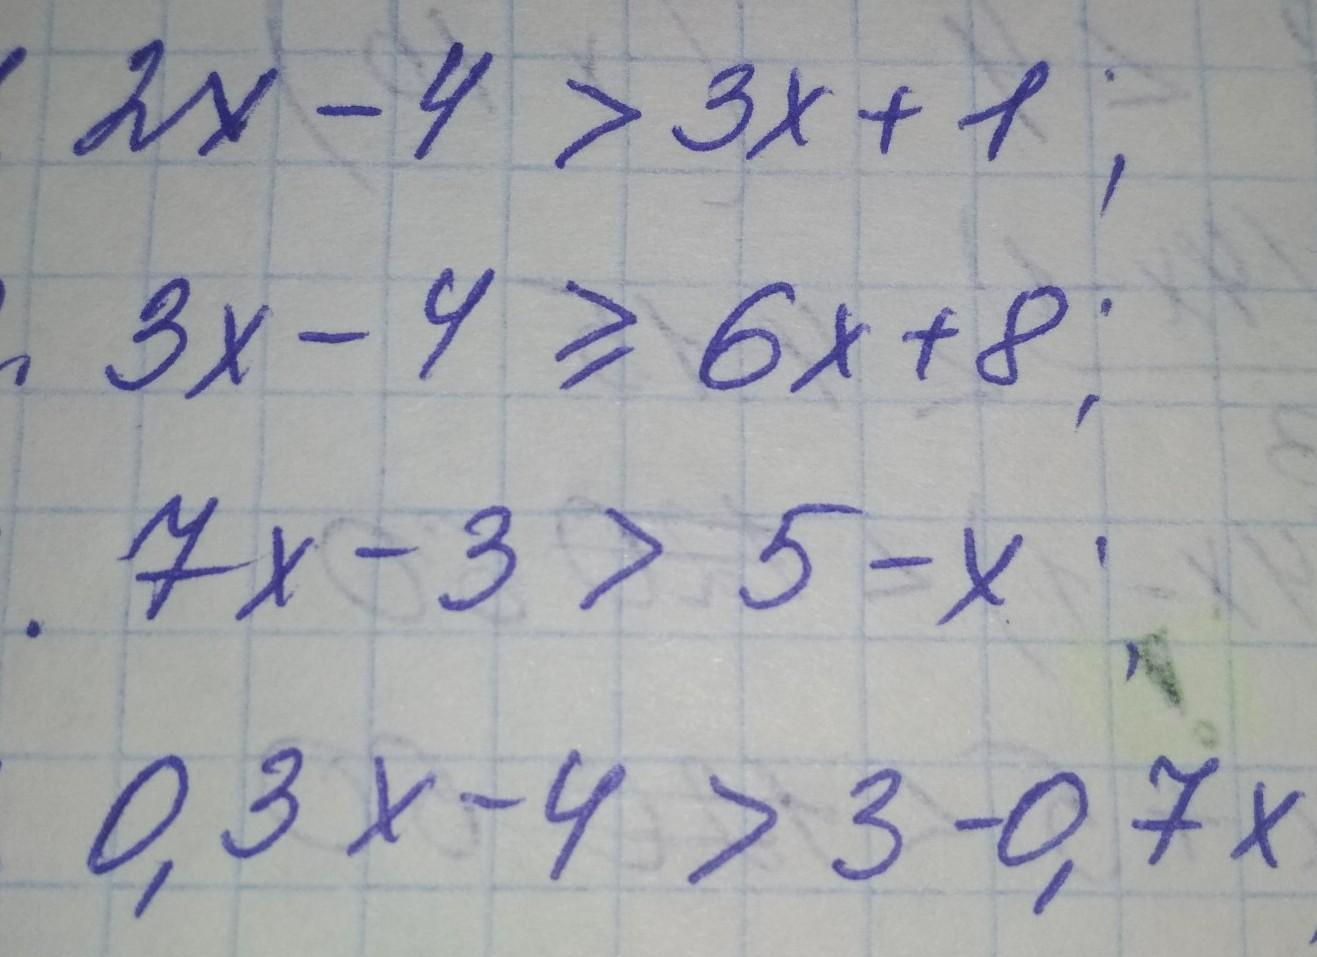 2x - 4 > 3x + 1;
3x - 4 ⩾ 6x + 8;
7x - 3 > 5 - x;
0,3x - 4 > 3 - 0,7x